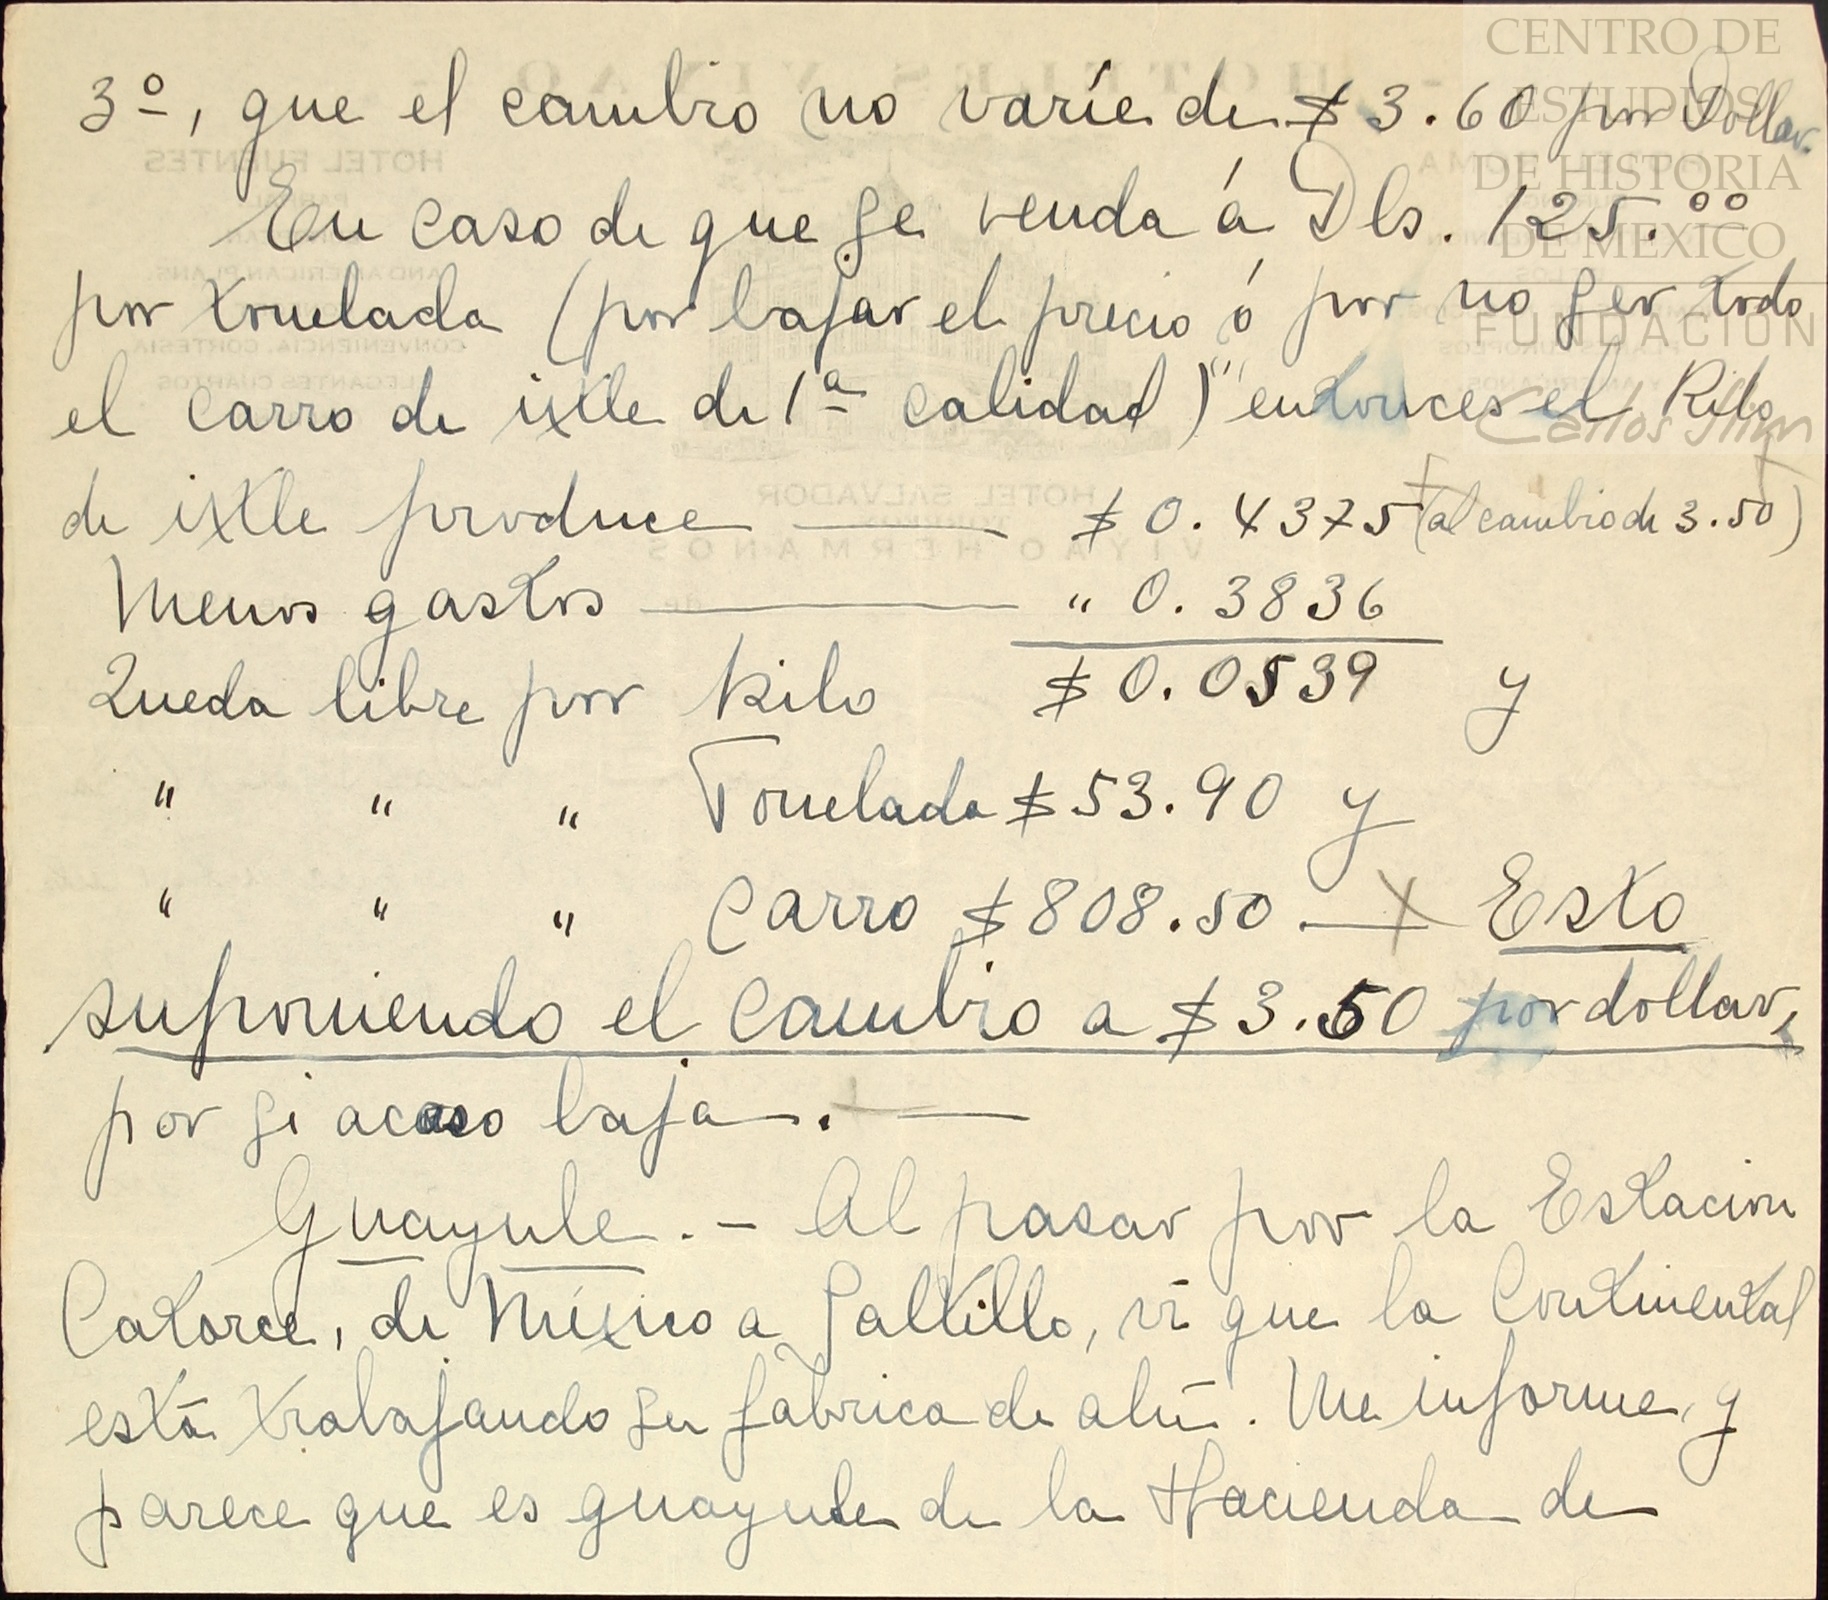 3º, que el cambio no varíe de $3.60 por Dollar.
En caso de que se venda á Dls. 125.00
por tonelada (por bajar el precio ó por no ser todo
el carro de ixtle de 1ª calidad) entonces el Kilo
de ixtle produce — $0.4375 (al cambio de 3.50)
Menos gastos — " 0.3836
Queda libre por Kilo $0.0539 y
" " " Tonelada $53.90 y
" " " Carro $808.50 — Esto
suponiendo el cambio a $3.50 por dollar,
por si acaso baja. —
Guayule. — Al pasar por la Estacion
Catorce, de México a Saltillo, ví que la Continental
está trabajando su fábrica de ahí. Me informe, y
parece que es guayule de la Hacienda de
CENTRO DE
ESTUDIOS
DE HISTORIA
DE MEXICO
FUNDACION
Carlos Slim
HOTEL FUENTES
AND AMERICAN PLANS
CONVENIENCIA, CORTESIA
ELEGANTES CUARTOS
HOTEL SALVADOR
HERMANOS